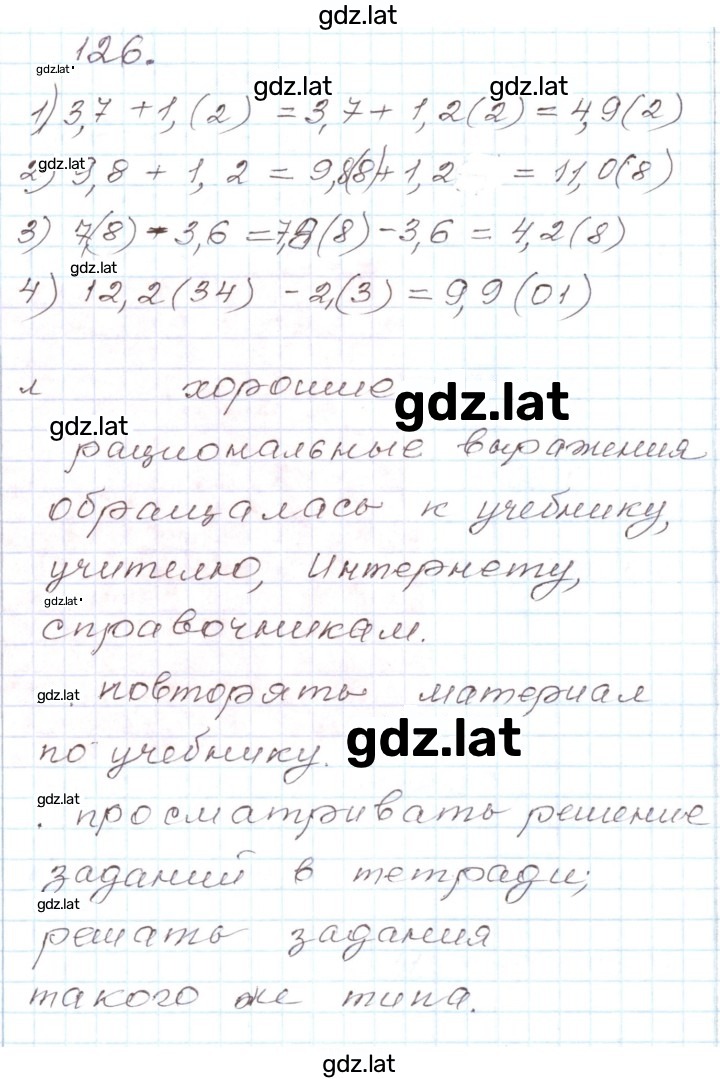 gdz.lat
126.
gdz.lat
gdz.lat gdz.lat
1) 3,7 + 1,(2) = 3,7 + 1,2(2) = 4,9(2)
gdz.lat
2) 9,8 + 1,2 = 9,8(8) + 1,2 = 11,0(8)
3) 7,(8) - 3,6 = 7,8(8) - 3,6 = 4,2(8)
gdz.lat
4) 12,2(34) - 2,(3) = 9,9(01)
л хорошие
gdz.lat
gdz.lat
рациональные выражения
обращалась к учебнику,
учителю, Интернету,
gdz.lat
справочникам.
gdz.lat повторять материал
по учебнику.
gdz.lat
gdz.lat
. просматривать решение
заданий в тетради;
gdz.lat
решать задания
такого же типа.
gdz.lat